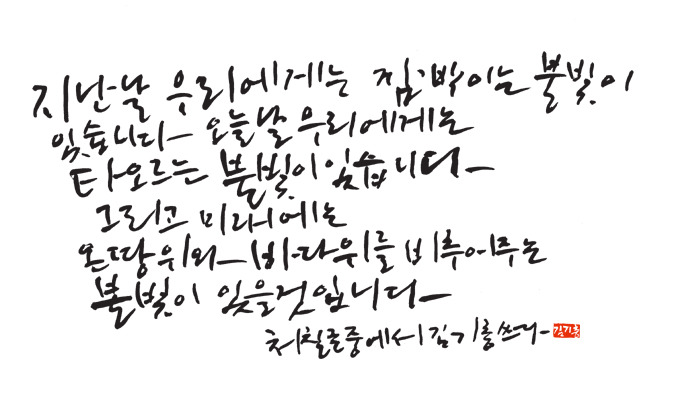 지난날 우리에게는 깜박이는 불빛이
있습니다 오늘날 우리에게는
타오르는 불빛이 있습니다
그리고 미래에는
온땅위와 바다위를 비추어주는
불빛이 있을것입니다
처칠글중에서 김기롱쓰다